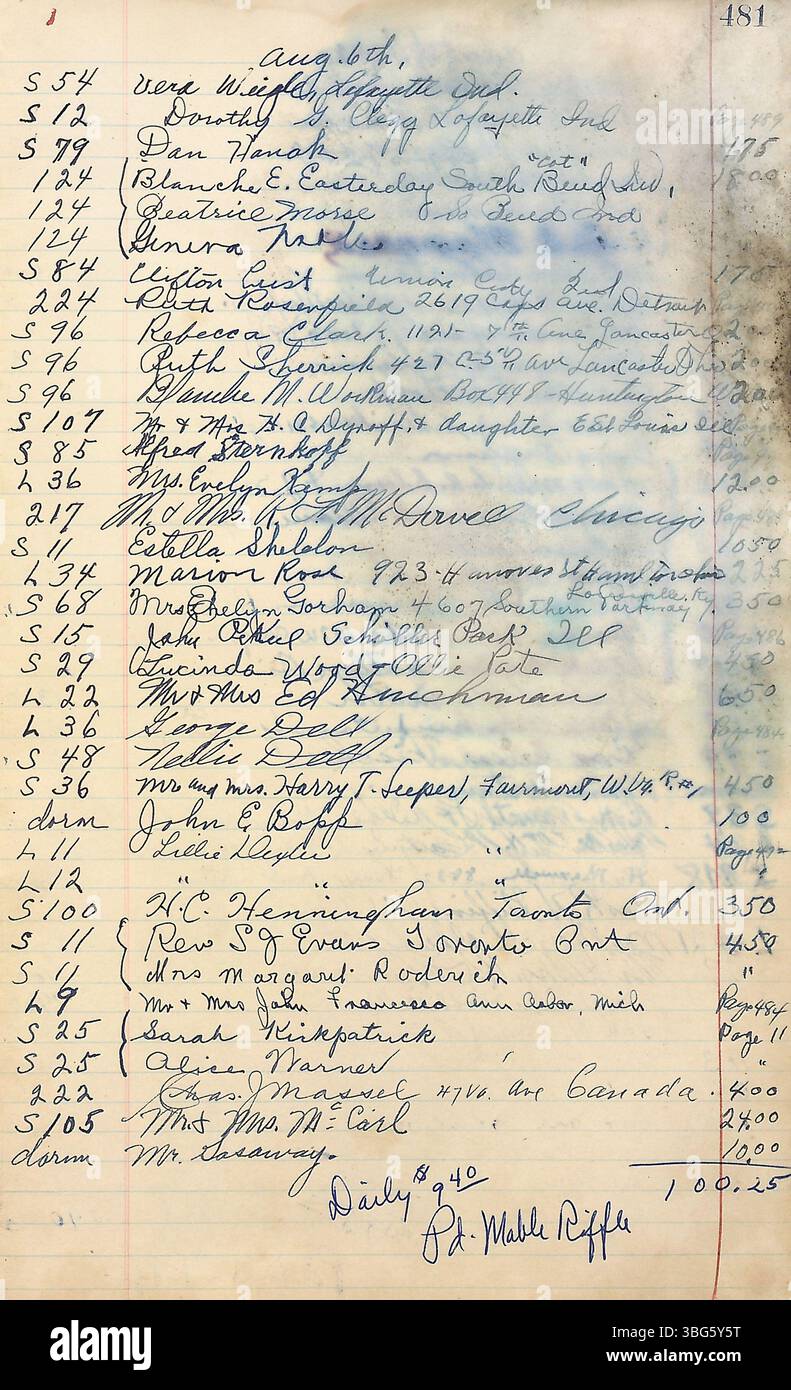 1 481
Aug. 6th,
S 54 Vera Lafayette Ind.
S 12 Dorothy G. Clegg Lafayette Ind Page 489
S 79 Dan Hanak 1.75
"Cot"
124 Blanche E. Easterday South Bend Ind, 18.00
124 Beatrice Morse So Bend Ind "
124 Geneva
S 84 Clifton Lust Union City Ind 175
224 Ruth Rosenfield 2619 Ave. Detroit
S 96 Rebecca Clark. 1121- 7th Ave Lancaster O 200
S 96 Ruth Sherrick 427 Ave Lancaster Ohio 200
S 96 Blanche M. Workman Box 448-Huntington W 200
S 107 Mr & Mrs H. C Dyroff & daughter E St Louis Ill
S 85 Alfred Sternkopf
L 36 Mrs. Evelyn Kemp 12.00
217 Mr & Mrs. R. McDowell Chicago Page
S 11 Estella Sheldon 1050
L 34 Marion Rose 923-Hanover St Hamilton Ohio 225
S 68 Mrs Evelyn Gorham 4607 Southern Parkway Louisville, Ky. 350
S 15 John Schiller Park Ill Page 486
S 29 Lucinda Wood-Ollie Pate 450
L 22 Mr & Mrs Ed Hinchman 650
L 36 George Dell Page 484
S 48 Nellie Doll " "
S 36 Mr and Mrs. Harry T. Leeper, Fairmont, W.Va. R.#1 450
dorm John E. Bopp 100
L 11 Lillie " Page
L 12 " " " "
S 100 H.C. Henningham Toronto Ont. 350
S 11 Rev S J Evans Toronto Ont 450
S 11 Mrs Margaret Roderick "
L 9 Mr & Mrs John Francesco Ann Arbor, Mich Page 484
S 25 Sarah Kirkpatrick Page 11
S 25 Alice Warner "
222 Chas. J Massel 47 Va. Ave Canada. 4.00
S 105 Mr. & Mrs. McCarl 24.00
dorm Mr. Gasaway. 10.00
100.25
Daily $9.40
Pd. Mable Riffle
alamy
Image ID: 3BG5Y5T
www.alamy.com